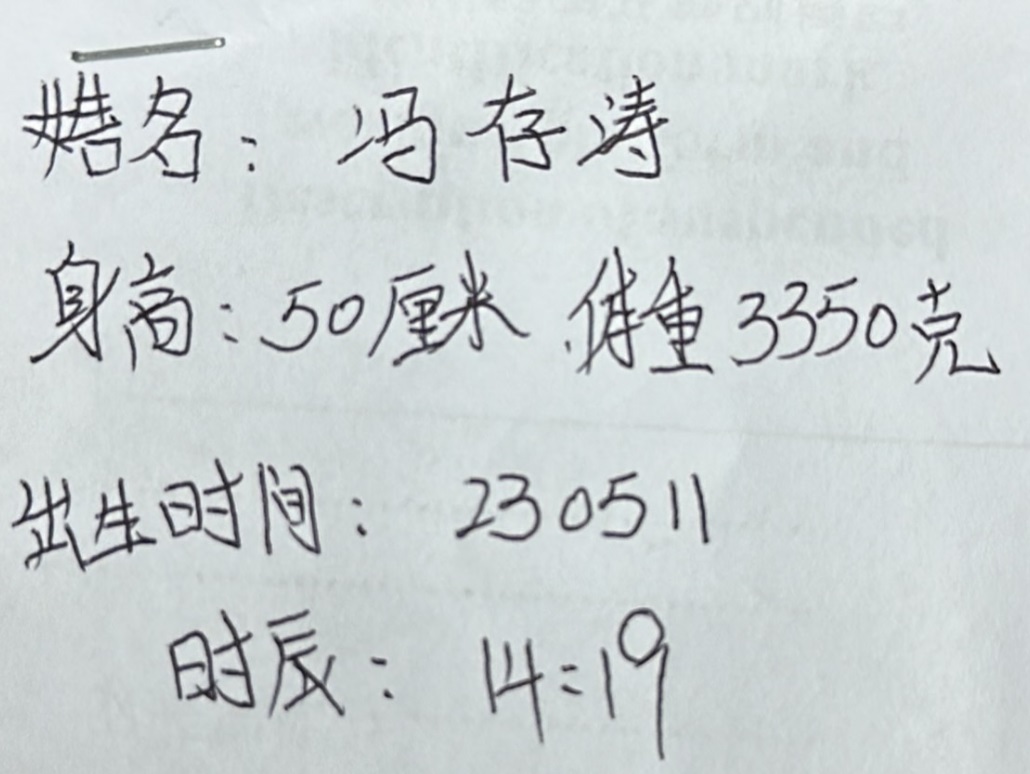 姓名：冯存涛
身高：50厘米 体重3350克
出生时间：230511
时辰：14:19